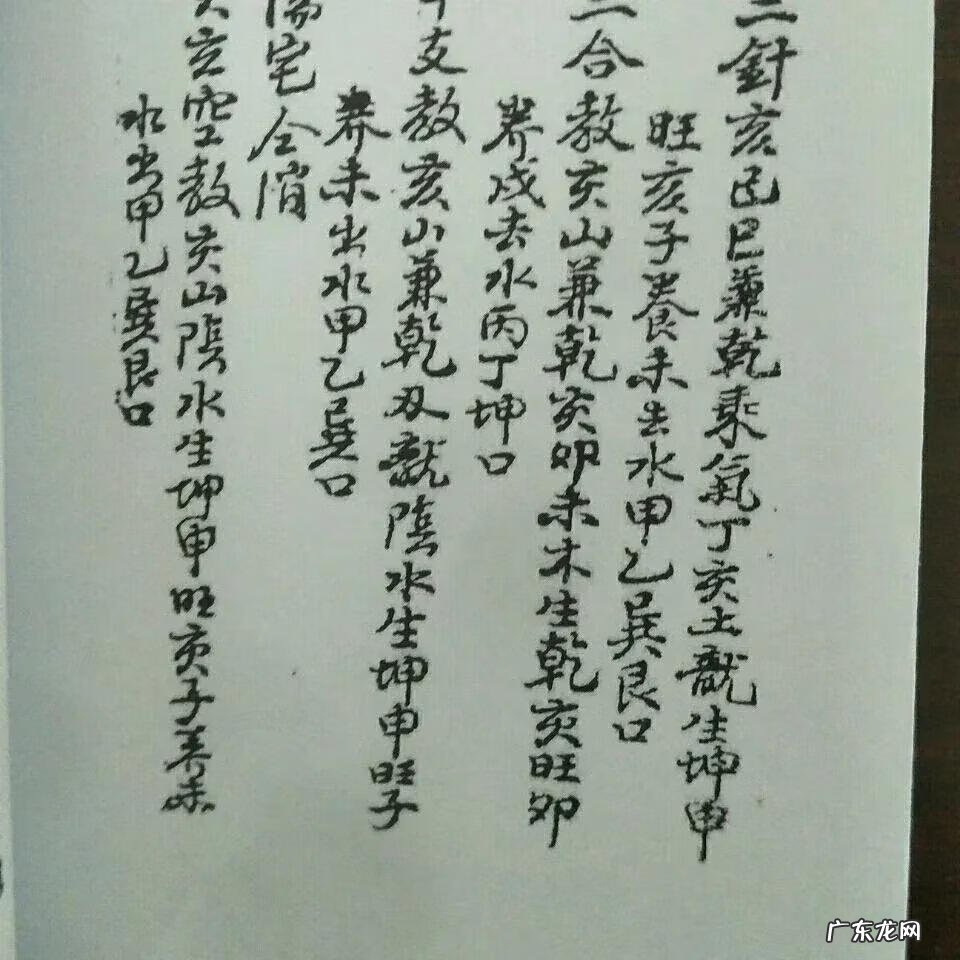 三針亥巳巳兼乾乘氣丁亥土龍生坤申
旺亥子養未去水甲乙巽艮口
二合教亥山兼乾亥卯未木生乾亥旺卯
养戌去水丙丁坤口
支教亥山兼乾双龍陰水生坤申旺子
养未出水甲乙巽口
宅仝消
亥玄空教亥山陰水生坤申旺亥子养未
水出甲乙巽艮口
广东龙网